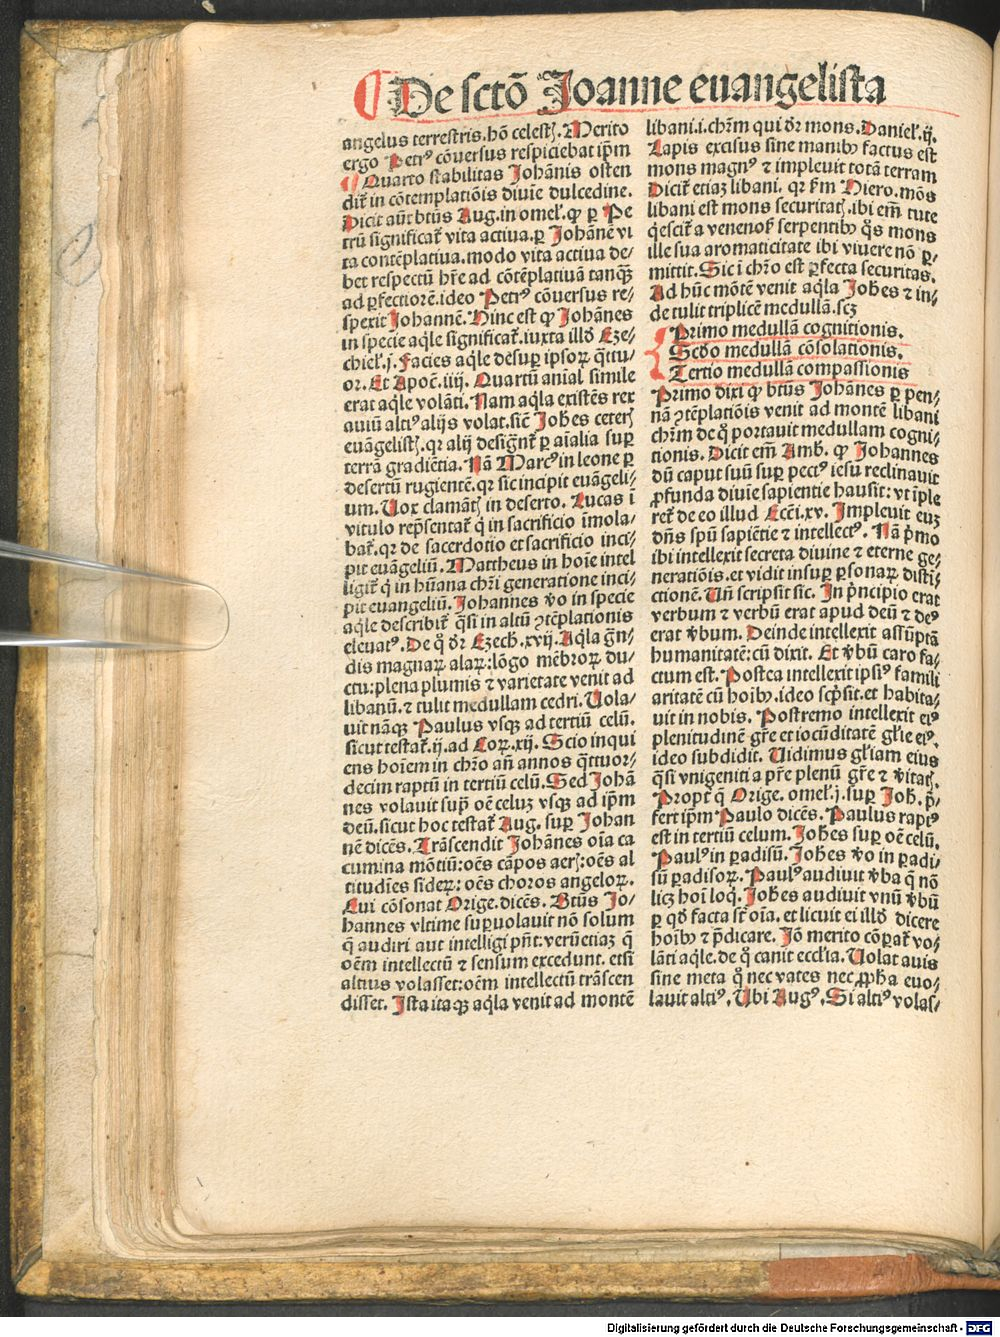 De sctō Joanne euangelista
angelus terrestris. hō celestꝭ. Merito
ergo Petrꝰ cōuersus respiciebat ip̄m
Quarto stabilitas Johānis osten
dit̄ in cōtemplatiōis diuīe dulcedine.
Dicit aūt btūs Aug. in omel̓. ꝙ ꝑ Pe
trū significat̄ vita actiua. ꝑ Johānē vi
ta contēplatiua. modo vita actiua de-
bet respectū hr̄e ad cōtēplatiuā tanqꝫ
ad ꝑfectiorē. ideo Petrꝰ cōuersus re-
spexit Johannē. Hinc est ꝙ Johānes
in specie aq̄le significat̄. iuxta illđ Eze-
chiel̓. j. Facies aq̄le desuꝑ ipsoꝝ q̄ttu-
or. Et Apoc̄. iiij. Quartū aniāl simile
erat aq̄le volāti. Nam aq̄la existēs rex
auiū altiꝰ alijs volat. sic̄ Joh̄es ceterꝭ
euāgelistꝭ. qr alij design̄t̄ ꝑ aīalia suꝑ
terrā gradiētia. Nā Marcꝰ in leone ꝑ
desertū rugientē. qr sic incipit euāgeli-
um. Uox clamātꝭ in deserto. Lucas ī
vitulo rep̄sentat̄ q̄ in sacrificio īmola-
bat̄. qr de sacerdotio et sacrificio inci-
pit euāgeliū. Mattheus in hoīe intel
ligit̄ q̄ in hūana ch̄ri generatione inci-
pit euangeliū. Johannes ꝟo in specie
aq̄le describit̄ q̄si in altū ꝯtēplationis
eleuatꝰ. De q̄ dr̄ Ezech̄. xvij. Aq̄la grā̄n-
dis magnaꝝ alaꝝ: lōgo mēbroꝝ du-
ctu: plena plumis ⁊ varietate venit ad
libanū. ⁊ tulit medullam cedri. Uola-
uit nāqꝫ Paulus vsqꝫ ad tertiū celū.
sicut testat̄. ij. ad Coꝝ. xij. Scio inqui
ens hoīem in chr̄o an̄ annos q̄ttuor-
decim raptū in tertiū celū. Sed Johā
nes volauit sup̄ oē celuꝫ vsqꝫ ad ip̄m
deū. sicut hoc testat̄ Aug. suꝑ Johan
nē dicēs. Trāscendit Johānes oīa ca
cumina mōtiū: oēs cāpos aerꝭ: oēs al
titudīes sideꝝ: oēs choros angeloꝝ.
Cui cōsonat Orige. dicēs. Btūs Jo-
hannes vltime suꝑuolauit nō solum
q̄ audiri aut intelligi pn̄t: verūetiaꝫ q̄
oēm intellectū ⁊ sensum excedunt. etsi
altius volasset: oēm intellectū trāscen
disset. Ista itaqꝫ aq̄la venit ad montē
libani. i. chr̄m qui dr̄ mons. Daniel̓. ij.
Lapis excisus sine manibꝰ factus est
mons magnꝰ ⁊ impleuit totā terram
Dicit̄ etiaꝫ libani. qr ẜm Hiero. mōs
libani est mons securitatꝭ. ibi em̄ tute
q̄escit̄ a venenoẜ serpentibꝰ q̄s mons
ille sua aromaticitate ibi viuere nō ꝑ-
mittit. Sic ī chr̄o est ꝑfecta securitas.
Ad hūc mōtē venit aq̄la Joh̄es ⁊ in-
de tulit triplicē medullā. scꝫ
Primo medullā cognitionis.
Scđo medullā cōsolationis.
Tertio medullā compassionis
Primo dixi ꝙ btūs Johānes ꝑ pen-
nā ꝯtēplatiōis venit ad montē libani
chr̄m de q̄ portauit medullam cogni-
tionis. Dicit em̄ Amb. ꝙ Johannes
dū caput suū suꝑ pectꝰ iesu reclinauit
ꝓfunda diuīe sapientie hausit: vt īple
ret̄ de eo illud Ecc̄i. xv. Impleuit euꝫ
dn̄s spū sapiētie ⁊ intellectꝰ. Nā p̄mo
ibi intellexit secreta diuine ⁊ eterne ge-
neratiōis. et vidit insuꝑ ꝑsonaꝝ disti-
ctionē. Un̄ scripsit sic. In p̄ncipio erat
verbum ⁊ verbū erat apud deū ⁊ deꝰ
erat ꝟbum. Deinde intellexit assūptā
humanitatē: cū dixit. Et ꝟbū caro fa-
ctum est. Postea intellexit ipsiꝰ famili
aritatē cū hoībꝰ. ideo scp̄sit. et habita-
uit in nobis. Postremo intellexit eiꝰ
plenitudinē gr̄e et iocūditatē gl̄ie eiꝰ.
ideo subdidit. Uidimus gl̄iam eius
q̄si vnigeniti a pr̄e plenū gr̄e ⁊ ꝟitatꝭ.
Propt̄ q̄ Orige. omel̓. j. suꝑ Joh̄. p̄-
fert ip̄m Paulo dicēs. Paulus raptꝰ
est in tertiū celum. Joh̄es suꝑ oē celū.
Paulꝰ in ꝑadisū. Joh̄es ꝟo in ꝑadi-
sū ꝑadisoꝝ. Paulꝰ audiuit ꝟba q̄ nō
licꝫ hoī loq̄. Joh̄es audiuit vnū ꝟbū
ꝑ qđ facta st̄ oīa. et licuit ei illđ dicere
hoībꝰ ⁊ p̄dicare. Jō merito cōꝑat̄ vo-
lāti aq̄le. de q̄ canit eccl̄ia. Uolat auis
sine meta q̄ nec vates nec ꝓph̄a euo-
lauit altiꝰ. Ubi Augꝰ. Si altiꝰ volas-
Digitalisierung gefördert durch die Deutsche Forschungsgemeinschaft - DFG